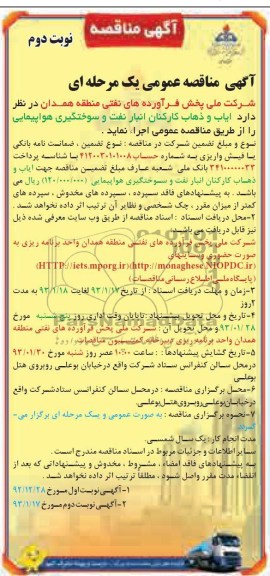 آگهی مناقصه
نوبت دوم
آگهی مناقصه عمومی یک مرحله ای
شرکت ملی پخش فرآورده های نفتی منطقه همدان در نظر
دارد ایاب و ذهاب کارکنان انبار نفت و سوختگیری هواپیمایی
را از طریق مناقصه عمومی اجراء نماید .
نوع و مبلغ تضمین شرکت در مناقصه : نوع تضمین ، ضمانت نامه بانکی
یا فیش واریزی به شماره حساب با شناسه پرداخت
بانک ملی شعبه عارف مبلغ تضمین مناقصه جهت ایاب و
ذهاب کارکنان انبار نفت و سوختگیری هواپیمایی ریال می
باشد . به پیشنهادهای فاقد سپرده ، سپرده های مخدوش ، سپرده های
کمتر از میزان مقرر ، چک شخصی و نظایر آن ترتیب اثر داده نخواهد شد .
۲-محل دریافت اسناد : اسناد مناقصه از طریق وب سایت معرفی شده ذیل
نیز قابل دریافت می باشد:
شرکت ملی پخش فرآورده های نفتی منطقه همدان واحد برنامه ریزی به
صورت حضوری
(HTTP://iets.mporg.ir)(http://monaghese.NIOPDC.ir)
(پایگاه ملی اطلاع رسانی مناقصات)
۳-زمان و مهلت دریافت اسناد : از تاریخ ۹۳/۱/۱۷ لغایت ۹۳/۱/۱۸ به مدت
۲روز
۴-تاریخ و محل تحویل پیشنهاد :تا پایان وقت اداری روز مورخ
۹۳/۰۱/۲۸ و محل تحویل آن : شرکت ملی پخش فرآورده های نفتی منطقه
همدان واحد برنامه ریزی دبیرخانه کمیسیون مناقصات
۵-تاریخ گشایش پیشنهادها : ساعت ۱۰:۰۰ عصر روز شنبه مورخ ۹۳/۰۱/۳۰
درمحل سالن کنفرانس ستاد شرکت واقع درخیابان بوعلی روبروی هتل
بوعلی
۶-محل برگزاری مناقصه : درمحل سالن کنفرانس ستادشرکت واقع
درخیابان بوعلی روبروی هتل بوعلی.
۷-نحوه برگزاری مناقصه : به صورت عمومی و یک مرحله ای برگزار می-
گردد
مدت انجام کار: یک سال شمسی.
سایر اطلاعات و جزئیات مربوط در اسناد مناقصه مندرج است .
به پیشنهادهای فاقد امضاء ، مشروط ، مخدوش و پیشنهاداتی که بعد از
انقضاء مدت مقرر واصل شود ، مطلقاً ترتیب اثر داده نخواهد شد.
۱-آگهی نوبت اول مورخ ۹۲/۱۲/۲۸
۲-آگهی نوبت دوم مورخ ۹۳/۱/۱۷